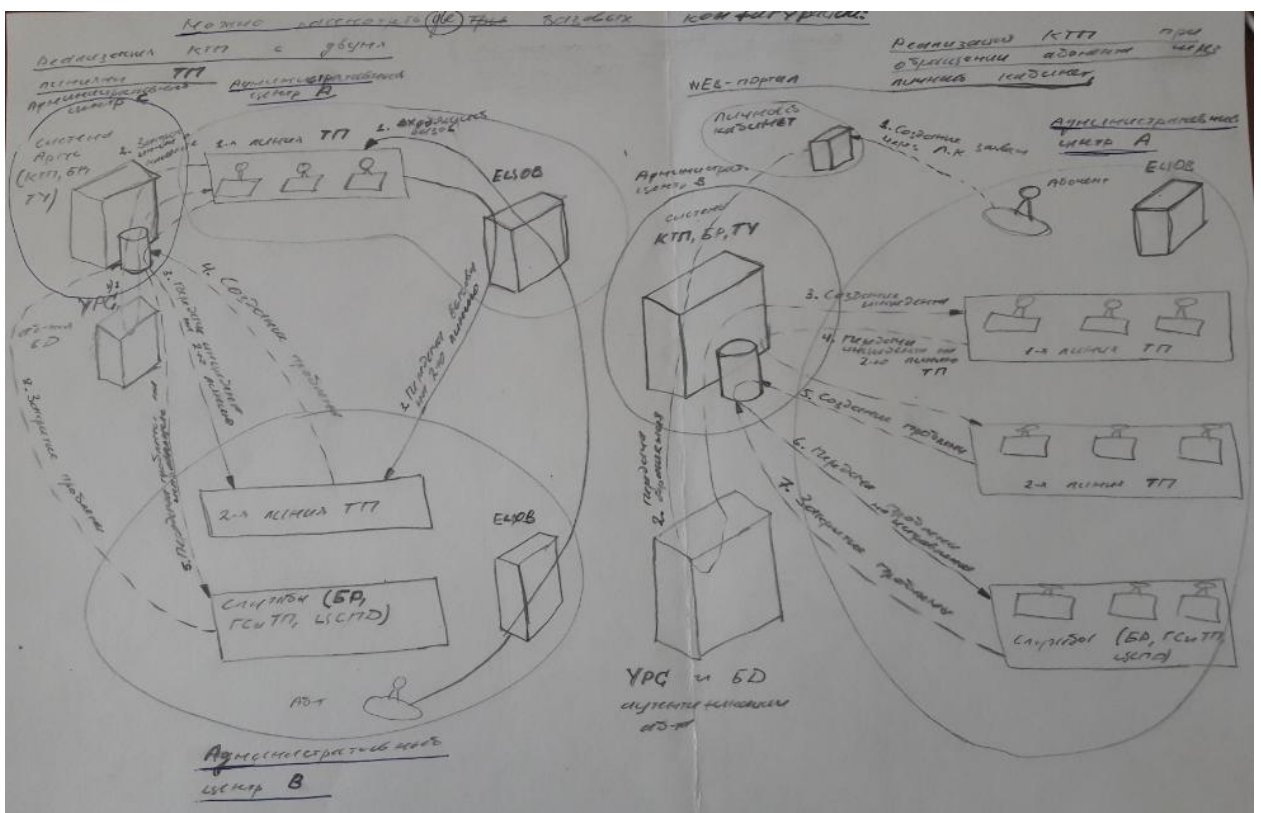 Можно рассмотреть две три базовых конфигурации:
Реализация КТП с двумя
линиями ТП
Административный
центр С
Административный
центр А
система
Аргус
(КТП, БР,
ТУ)
1-я линия ТП
1. входящий
вызов
ЕЦОВ
УРС
БД
3. Передача инцидента
на 2-ю линию
4. Создание проблемы
2. Передача вызова
на 2-ю линию
8. Закрытие проблемы
2-я линия ТП
ЕЦОВ
службы (БР,
ГСиТП, ЦСПД)
Аб-т
Административный
центр В
Реализация КТП при
обращении абонента через
личный кабинет
WEB-портал
личный
кабинет
1. Создание
через л.к заявки
Административный
центр А
Абонент
ЕЦОВ
Администрат.
центр В
система
КТП, БР, ТУ
3. Создание инцидента
1-я линия ТП
4. Передача
инцидента на
2-ю линию
ТП
5. Создание проблемы
2-я линия ТП
6. Передача проблемы
на исправление
7. Закрытие проблемы
2. Передача
Службы (БР, ГСиТП,
ЦСПД)
УРС и БД
аутентификации
аб-та